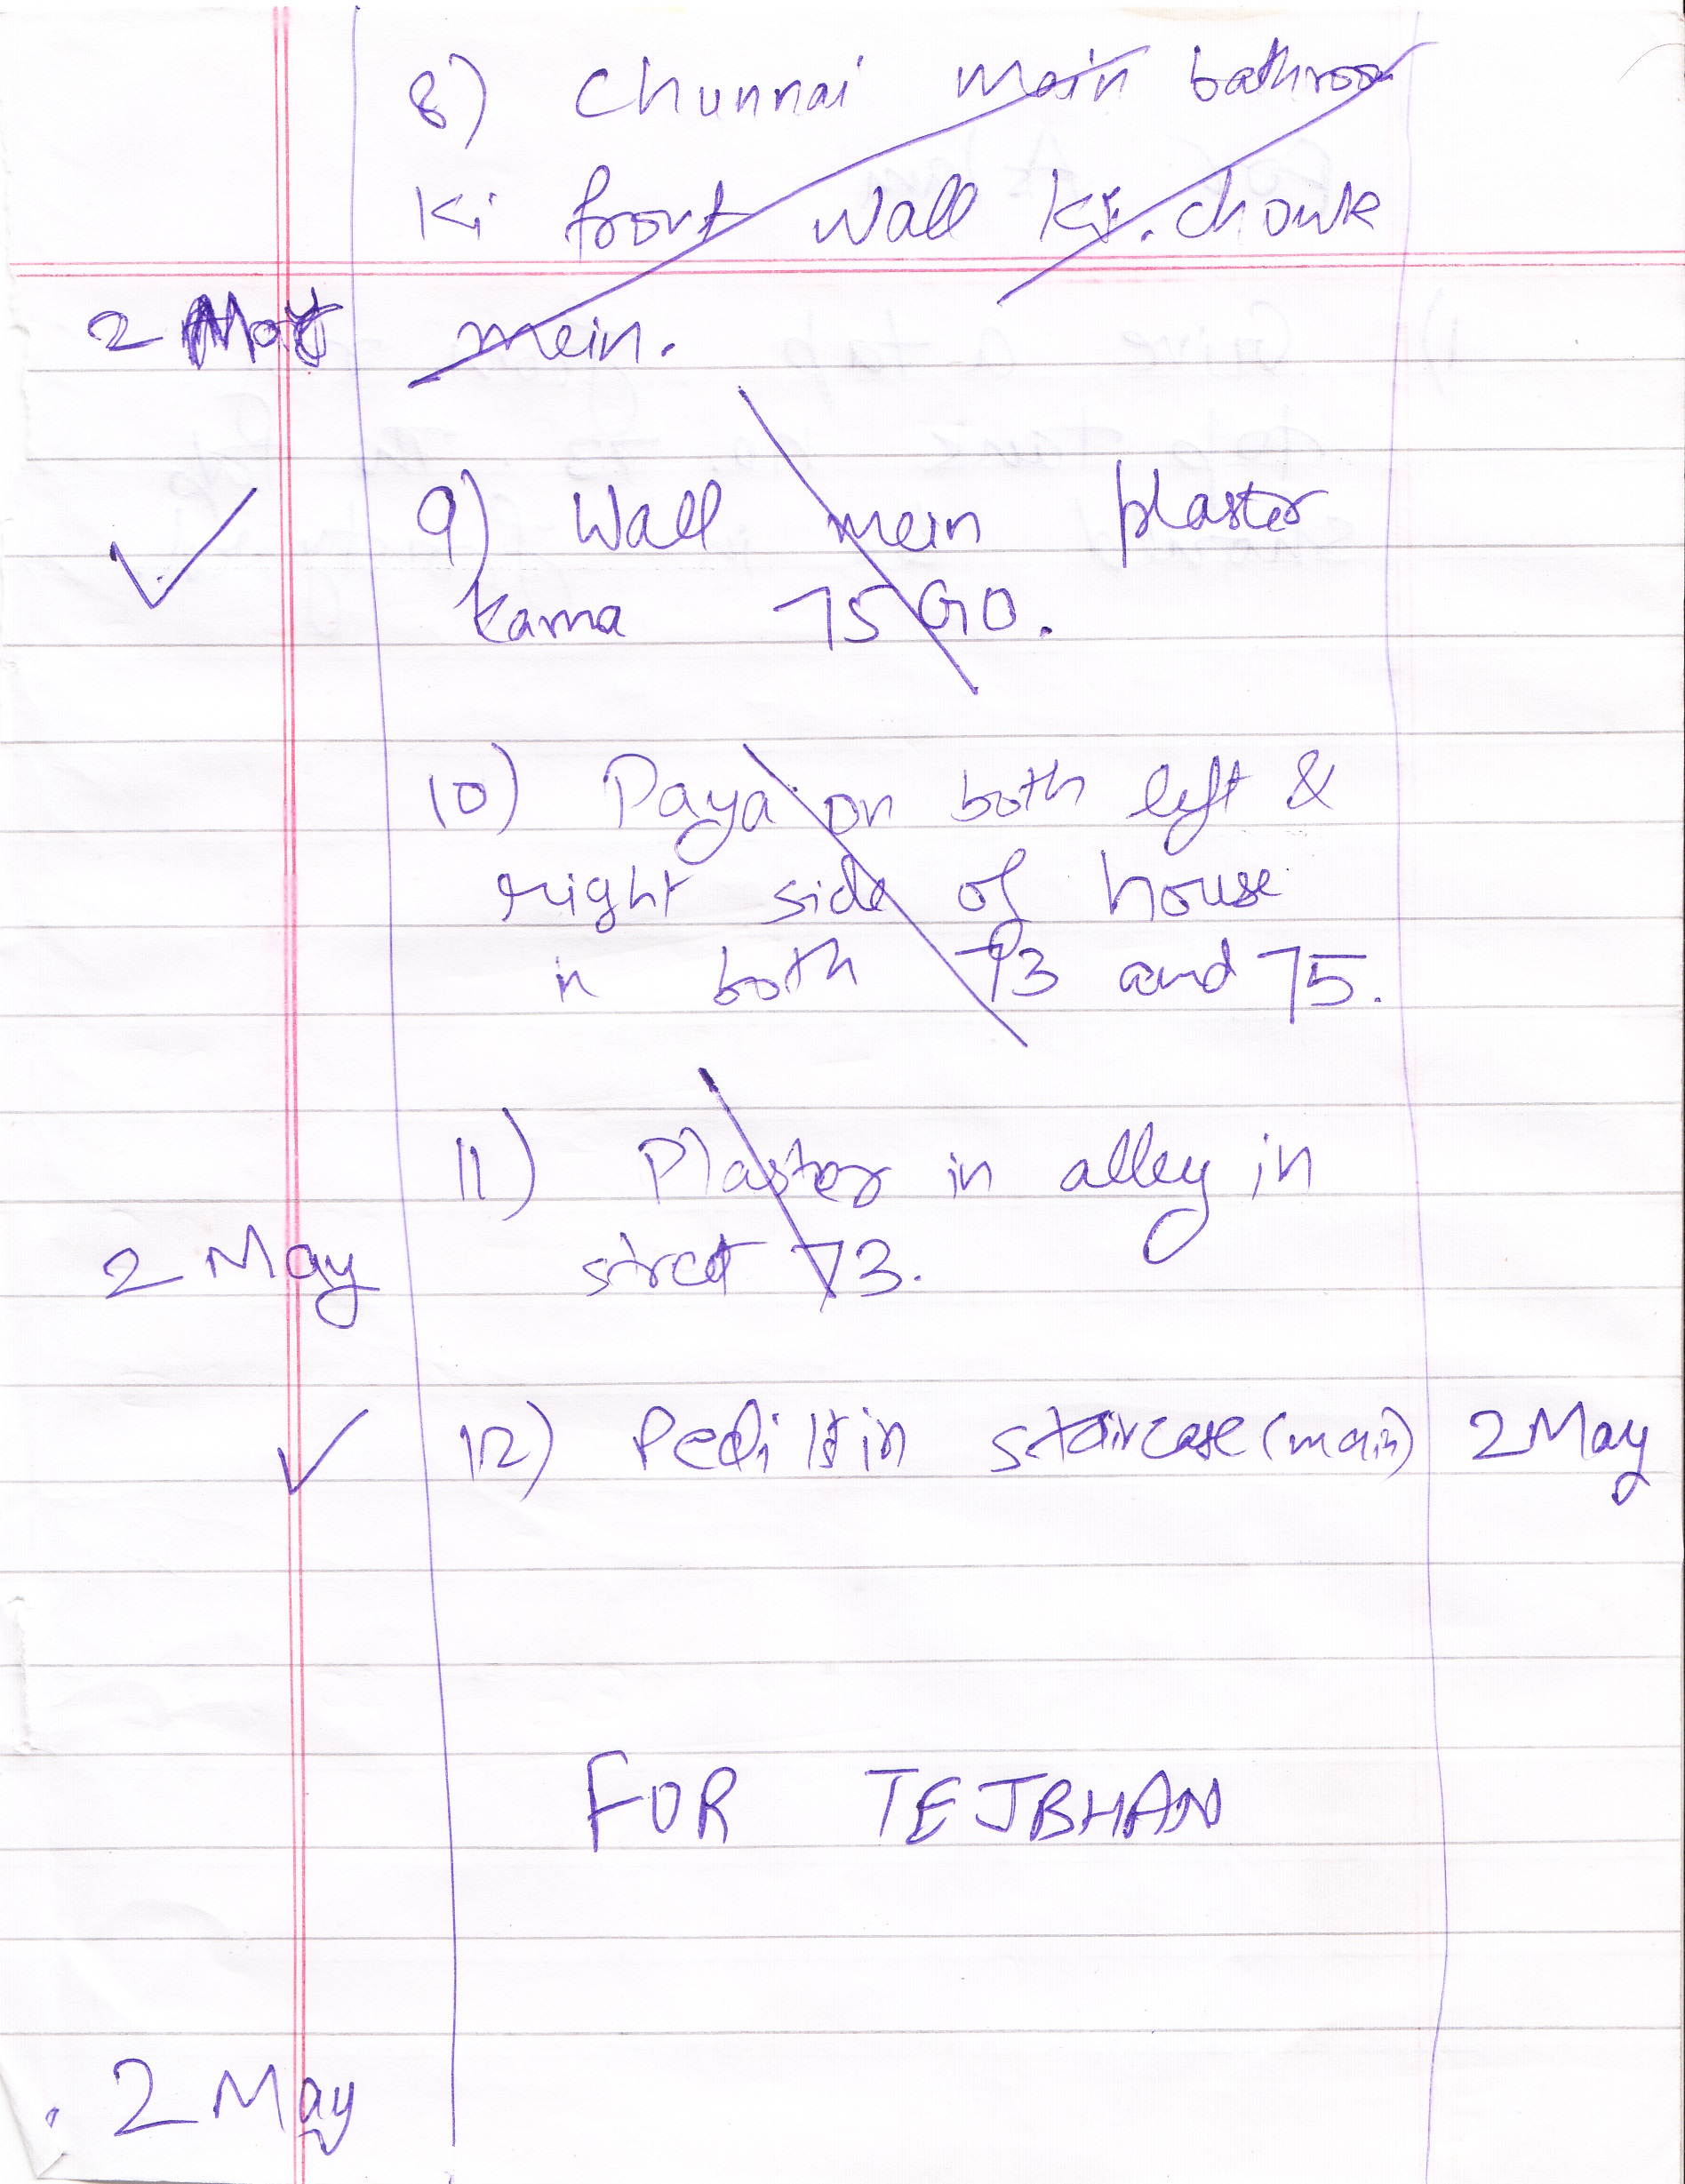 8) Chunnai main bathroo
Ki front wall Ki. chowk
2 May mein.
9) Wall mein plaster
karna 75 GO.
10) Paya on both left &
right side of house
in both 73 and 75.
11) Plaster in alley in
2 May street 73.
12) in staircase (main) 2 May
FOR TEJBHAN
2 May